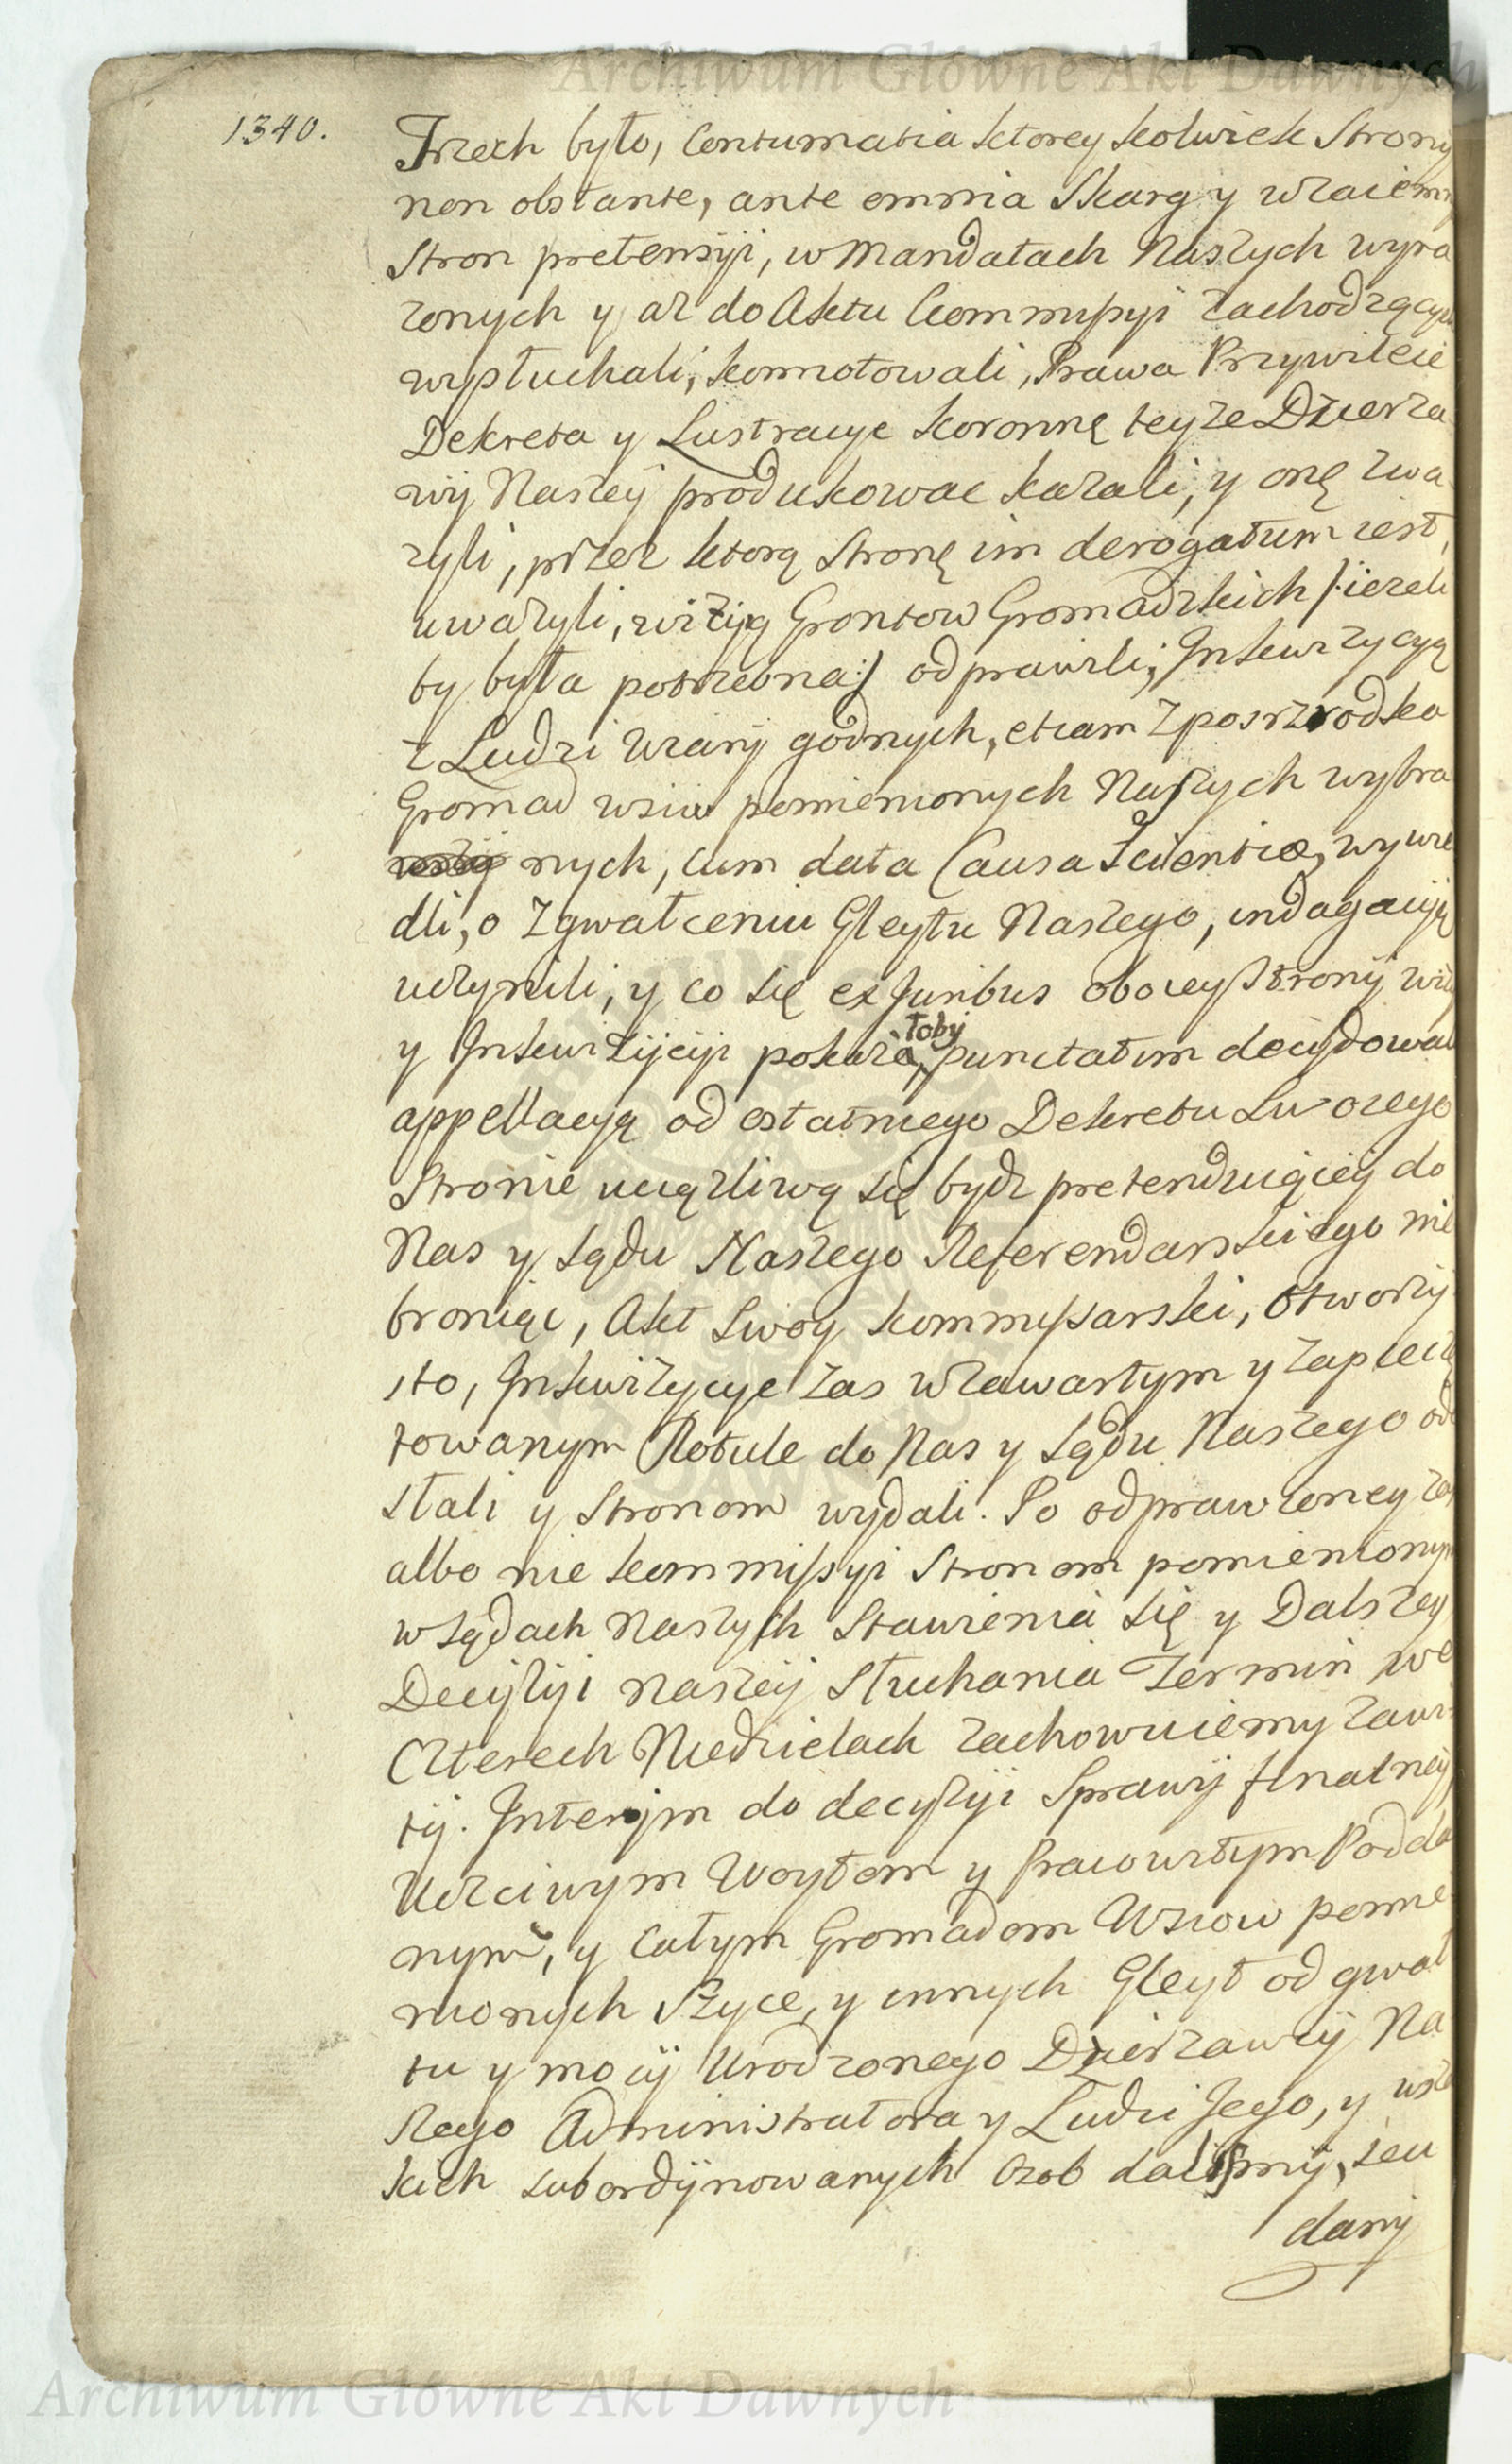 Archiwum Główne Akt Dawnych
1340.
Trzech było, Contumatia ktorey kolwiek Strony
non obstante, ante omnia Skarg y wzaiemny
Stron pretensyi, w Mandatach Naszych wyra
zonych y az do Aktu Commissyi zachodzących
wysłuchali, konnotowali, Prawa Przywileie
Dekreta y Lustracye koronnę teyze Dzierza
wy Naszey produkowac kazali, y onę zwa
zyli, przez ktorą Stronę im derogatum iest,
uwazyli, wizyą Grontow Gromadzkich /:iezeli
by była potrzebna:/ odprawili, Inkwizycyą
z Ludzi wiary godnych, etiam z posrzrodka
Gromad wsiw pomienionych Naszych wybra
nych, cum data Causa Scientiæ, wywie
dli, o Zgwałceniu Gleytu Naszego, indagacyą
uczynili, y co się ex Juribus oboiey Strony wizyi
y Inkwizycyi pokaze, toby punctatim decydowal
appellacyą od ostatniego Dekretu Swoiego
Stronie uciązliwą się bydz pretenduiącey do
Nas y Sądu Naszego Referendarskiego nie
broniąc, Akt Swoy kommissarski, Otworzy
sto, Inkwizycye zas w zawartym y zapiecze
towanym Rotule do Nas y Sądu Naszego ode
słali y Stronom wydali. Po odprawioney zas
albo nie kommissyi Stronom pomienionym
w Sądach Naszych Stawienia się y Dalszey
Decyzyi Naszey Słuchania Termin we
Czterech Niedzielach zachowuiemy zawi
ty. Interym do decyzyi Sprawy finalney
Uczciwym Woytom y Pracowitym Podda
nym, y Całym Gromadom Wsiow pomie
nionych Szyce, y innych Gleyt od gwał
tu y mocy Urodzonego Dzierzawcy Na
szego Administratora y Ludzi Jego, y wsz
kich subordynowanych Osob dalismy, seu
dany
Archiwum Główne Akt Dawnych